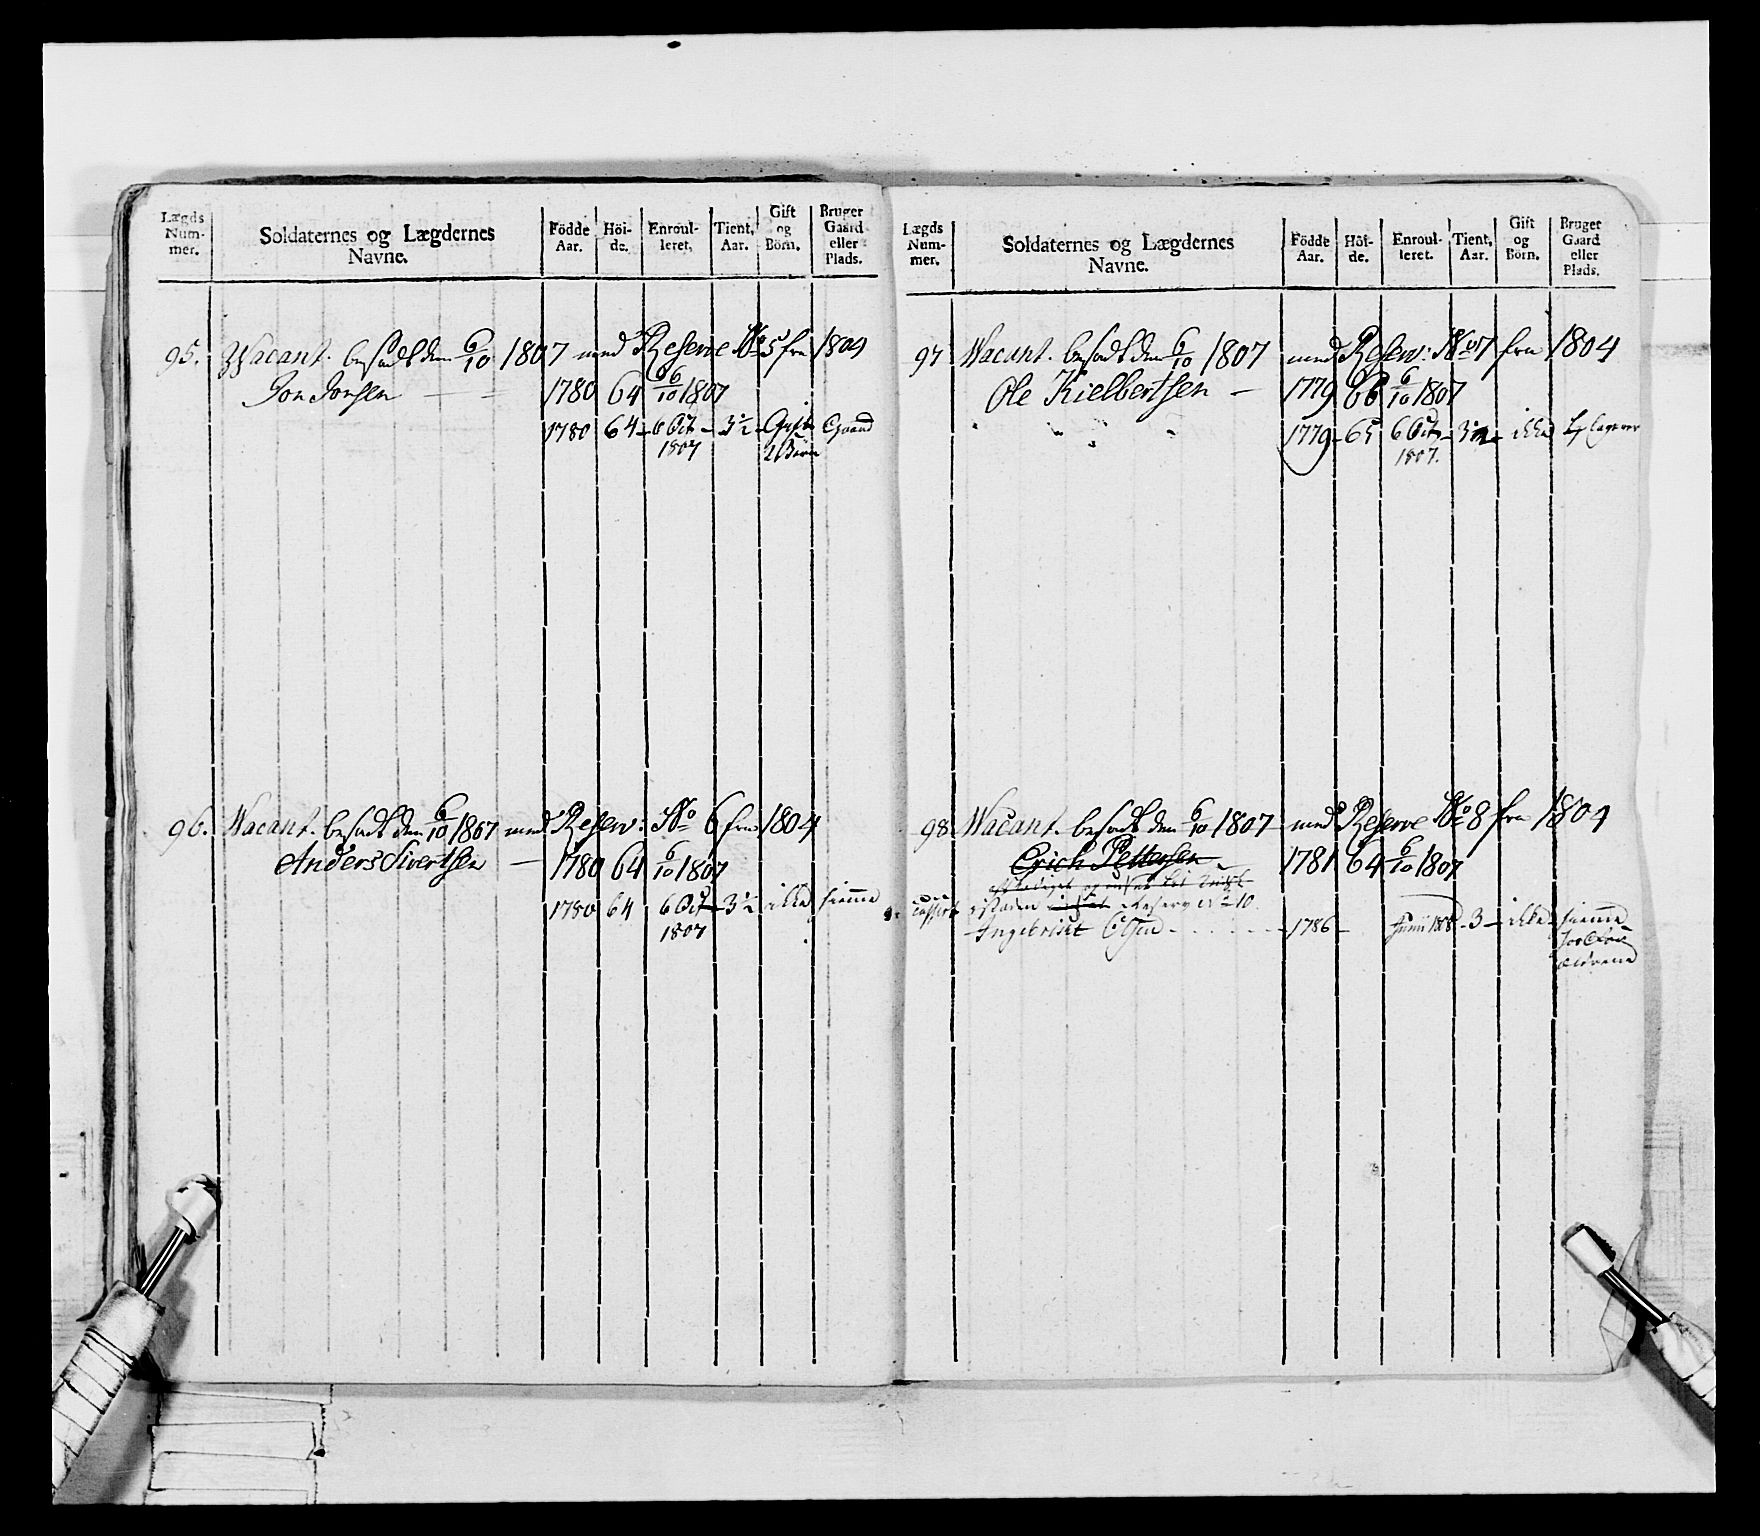 Lægds Num- mer. Soldaternes og Lægdernes Navne. Födde Aar. Höi- de. Enroul- leret. Tient, Aar. Gift og Börn. Bruger Gaard eller Plads.
95. Wacant. besadt den 6/10 1807 med Reserve No 5 fra 1804
Jon Jonsen — — 1780 64 6/10 1807
1780 64 - 6 Oct - 3½ - Gift Gaard
1807 2 Børn
96. Wacant. besadt den 6/10 1807 med Reserv: No 6 fra 1804
Anders Sivertsen — 1780 64 6/10 1807
1780 64 6 Oct - 3½ - ikke hiemme
1807
Lægds Num- mer. Soldaternes og Lægdernes Navne. Födde Aar. Höi- de. Enroul- leret. Tient, Aar. Gift og Börn. Bruger Gaard eller Plads.
97 Wacant. besadt den 6/10 1807 med Reserv: No 7 fra 1804
Ole Kielbertsen — 1779 66 6/10 1807
1779 - 65 6 Oct - 3½ - ikke
1807.
98. Wacant. besadt den 6/10 1807 med Reserve No 8 fra 1804
Erich Pettersen 1781 64 6/10 1807
og
isteden Reserv No 10
Ingebricht Olsen - 1786 - Junii 1808 - 3 - ikke - hiemme